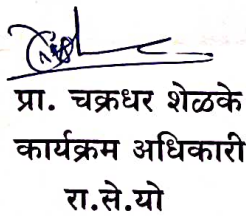 प्रा. चक्रधर शेळके
कार्यक्रम अधिकारी
रा.से.यो